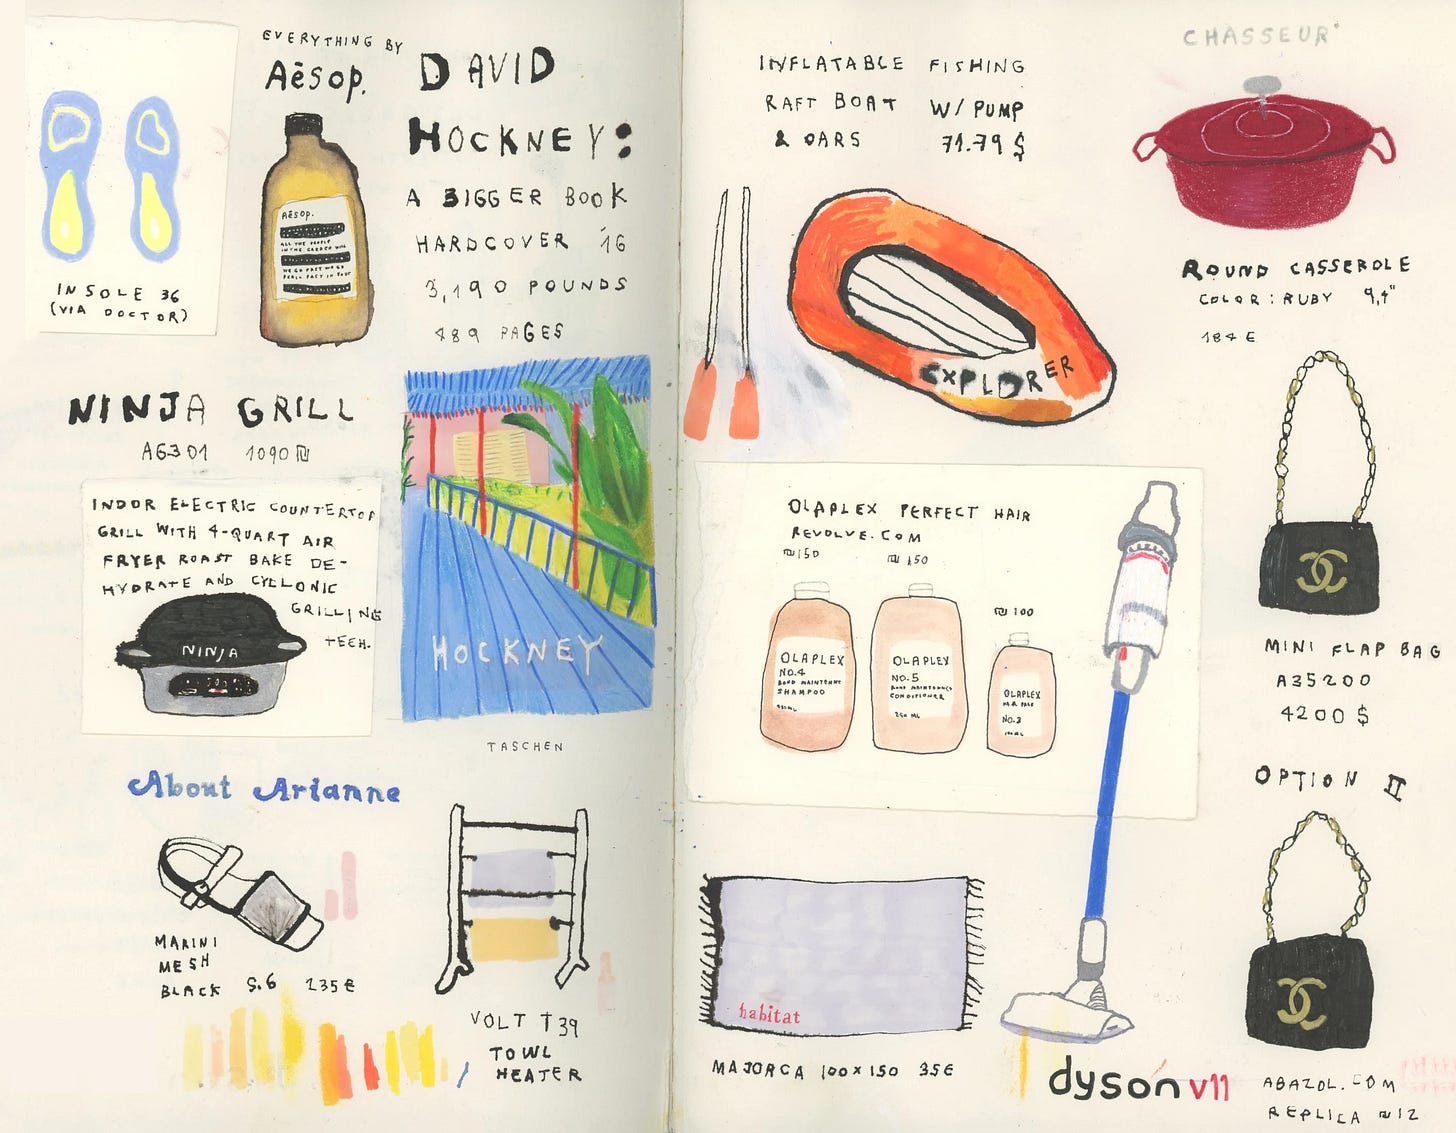 EVERYTHING BY
Aēsop.
Aēsop.
ALL THE PEOPLE
IN THE GARDEN
INSOLE 36
(VIA DOCTOR)
DAVID
HOCKNEY:
A BIGGER BOOK
HARDCOVER '16
3,190 POUNDS
489 PAGES
HOCKNEY
TASCHEN
NINJA GRILL
AG301 1090 ₪
INDOR ELECTRIC COUNTERTOP
GRILL WITH 4-QUART AIR
FRYER ROAST BAKE DE-
HYDRATE AND CYCLONIC
GRILLING
TECH.
NINJA
About Arianne
MARINI
MESH
BLACK S.6 235€
VOLT T39
TOWL
HEATER
INFLATABLE FISHING
RAFT BOAT W/ PUMP
& OARS 71.79 $
EXPLORER
CHASSEUR
ROUND CASSEROLE
COLOR: RUBY 9,4"
184 €
OLAPLEX PERFECT HAIR
REVOLVE.COM
₪150 ₪150
₪100
OLAPLEX
NO.4
BOND MAINTENNE
SHAMPOO
OLAPLEX
NO.5
BOND MAINTENNCE
CONDITIONER
250 ML
OLAPLEX
NO.3
100ML
MINI FLAP BAG
A35200
4200 $
OPTION II
habitat
MAJORCA 100x150 35€
dyson v11
ABAZOL.COM
REPLICA ₪12